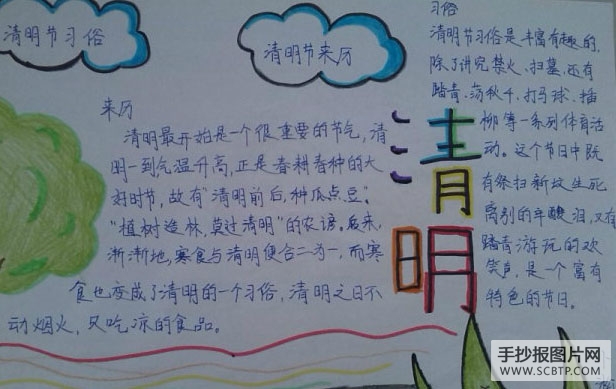 清明节习俗
清明节来历
来历
清明最开始是一个很重要的节气,清
明一到气温升高,正是春耕春种的大
好时节,故有"清明前后,种瓜点豆"。
"植树造林,莫过清明"的农谚。后来,
渐渐地,寒食与清明便合二为一,而寒
食也变成了清明的一个习俗,清明之日不
动烟火,只吃凉的食品。
清
明
习俗
清明节习俗是丰富有趣的,
除了讲究禁火、扫墓,还有
踏青、荡秋千、打马球、插
柳等一系列体育活
动。这个节日中既
有祭扫新坟生死
离别的辛酸泪,又有
踏青游玩的欢
笑声,是一个富有
特色的节日。
手抄报图片网
WWW.SCBTP.COM